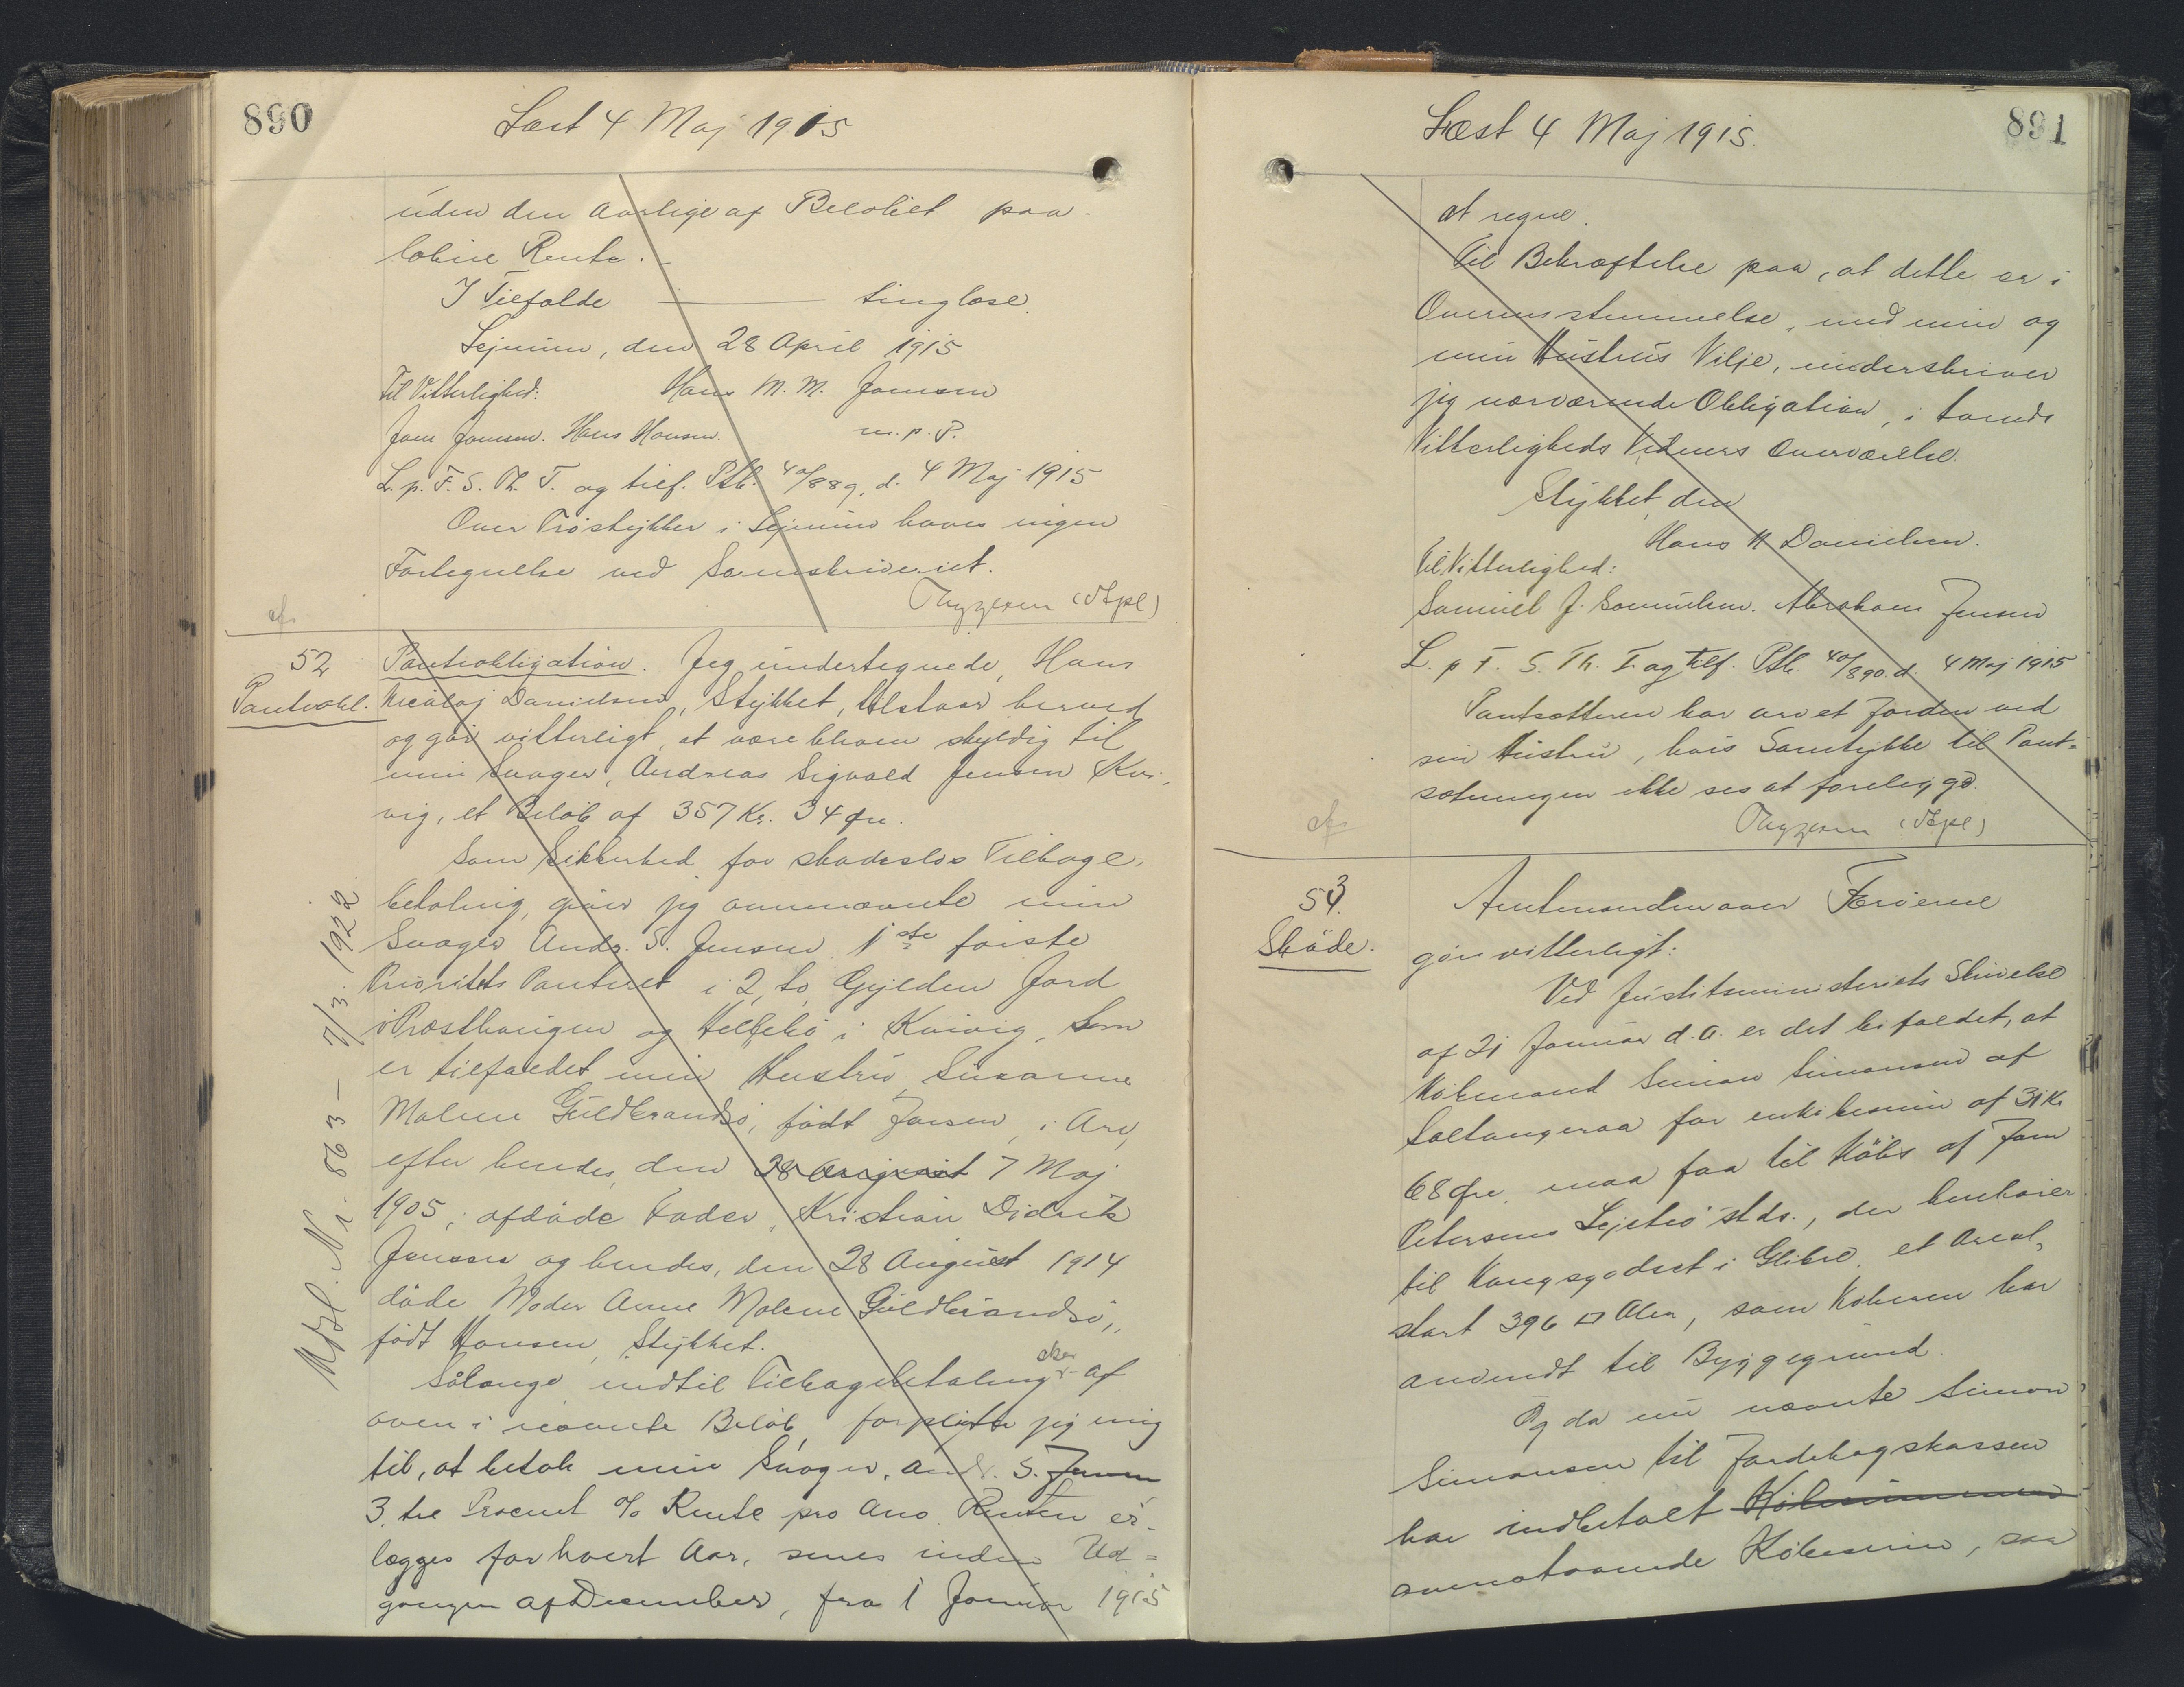 890
Læst 4 Maj 1915
uden den aarlige af Beløbet paa-
løbne Rente.
I Tilfælde ——— tinglæse.
Lejnum, den 28 April 1915
Til Vitterlighed: Hans M. M. Joensen
Joen Joensen. Hans Hansen. m. p. P.
L. p. F. S. Th. T. og tilf. Ptb. 4a/889, d. 4 Maj 1915
Over Tröstykker i Lejnum haves ingen
Fortegnelse ved Sorenskriveriet.
Thygesen (Kst)
52
Panteobl.
Panteobligation. Jeg undertegnede, Hans
Nicolaj Danielsen, Stykket, tilstaar herved
og gör vitterligt, at være bleven skyldig til
min Svoger, Andreas Sigvald Jensen Kvi-
vig, et Beløb af 357 Kr. 34 Øre.
Som Sikkerhed for skadeslös Tilbage-
betaling, giver jeg ovennævnte min
Svoger Andr. S. Jensen 1ste förste
Prioritets Panteret i 2, to Gylden Jord
i Præsthavigen og Hellebø i Kvivig, som
er tilfaldet min Hustru Susanne
Malene Guldbrandsö, född Jensen, i Arv,
efter hendes, den 28 August 7 Maj
1905, afdöde Fader, Kristian Didrik
Jensen og hendes, den 28 August 1914
döde Moder Anne Malene Guldbrandsö,
född Hansen, Stykket.
Sålænge indtil Tilbagebetaling sker af
oven i nævnte Beløb, forpligter jeg mig
til, at betale min Svoger, Andr. S. Jensen
3, tre Procent % Rente pro Ano. Renten er-
lægges for hvert Aar, senes inden Ud-
gangen af December, fra 1 Januar 1915
Udsl. Nr. 863 — 7/3. 1922.
891
Læst 4 Maj 1915.
at regne.
Til Bekræftelse paa, at dette er i
Overensstemmelse, med min og
min Hustrus Vilje, underskriver
jeg nærværende Obligation, i tvende
Vitterligheds Vidners Overværelse.
Stykket, den
Hans N Danielsen.
Til Vitterlighed:
Samuel J. Samuelsen. Abraham Jensen
L. p F. S. Th. T. og tilf. Ptb. 4a/890 d. 4 Maj 1915
Pantsætteren har arvet Jorden ved
sin Hustru, hvis Samtykke til Pant-
sætningen ikke ses at foreligge.
Thygesen (Kst)
53.
Sköde.
Amtmanden over Færöerne
gör vitterligt:
Ved Justitsministeriets Skrivelse
af 21 Januar d. A. er det bifaldet, at
Købmand Simon Simonsen af
Saltangeraa for en Købesum af 31 Kr
68 Øre maa faa til Købs af Joen
Petersens Lejetrö stds., der henhører
til Kongsgodset i Glibre et Areal,
stort 396 □ Alen, som Køberen har
anvendt til Byggegrund.
Og da nu nævnte Simon
Simonsen til Jordebogskassen
har indbetalt Købesummen
ovenstaaende Købesum, saa